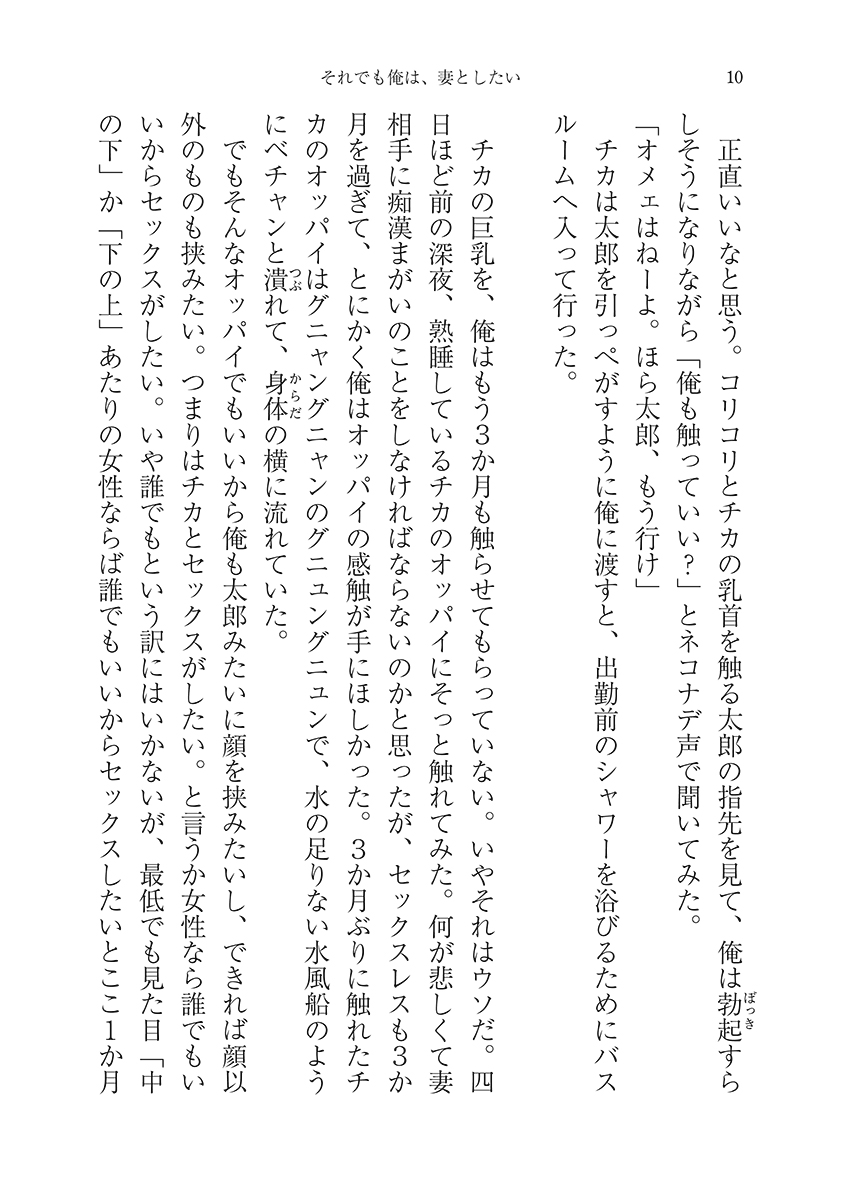 それでも俺は、妻としたい
10
正直いいなと思う。コリコリとチカの乳首を触る太郎の指先を見て、俺は勃起すら
ぼっき
しそうになりながら「俺も触っていい?」とネコナデ声で聞いてみた。
「オメェはねーよ。ほら太郎、もう行け」
チカは太郎を引っぺがすように俺に渡すと、出勤前のシャワーを浴びるためにバス
ルームへ入って行った。
チカの巨乳を、俺はもう3か月も触らせてもらっていない。いやそれはウソだ。四
日ほど前の深夜、熟睡しているチカのオッパイにそっと触れてみた。何が悲しくて妻
相手に痴漢まがいのことをしなければならないのかと思ったが、セックスレスも3か
月を過ぎて、とにかく俺はオッパイの感触が手にほしかった。3か月ぶりに触れたチ
カのオッパイはグニャングニャンのグニュングニュンで、水の足りない水風船のよう
にベチャンと潰れて、身体の横に流れていた。
つぶ
からだ
でもそんなオッパイでもいいから俺も太郎みたいに顔を挟みたいし、できれば顔以
外のものも挟みたい。つまりはチカとセックスがしたい。と言うか女性なら誰でもい
いからセックスがしたい。いや誰でもという訳にはいかないが、最低でも見た目「中
の下」か「下の上」あたりの女性ならば誰でもいいからセックスしたいとここ1か月